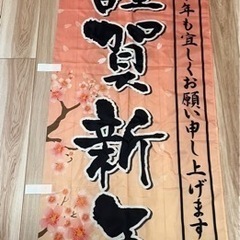 年も宜しくお願い申し上げます
謹賀新年